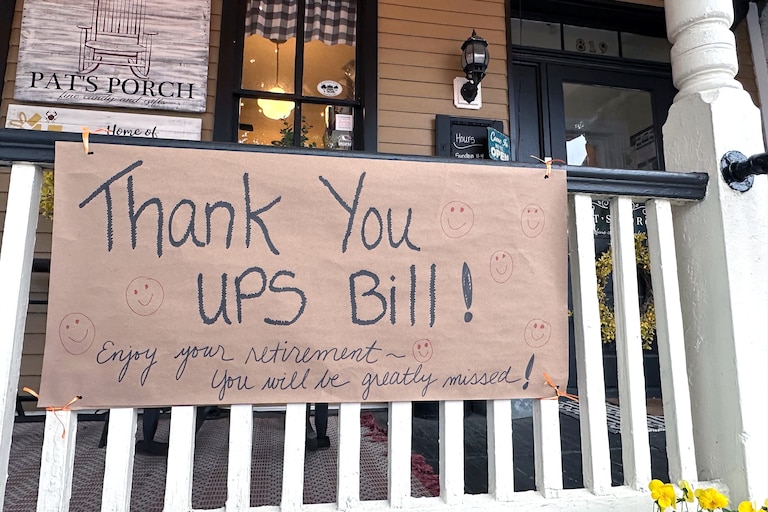 PAT'S PORCH
fine candy and gifts
Home of
819
Hours
Come In
We're
OPEN
Thank You
UPS Bill!
Enjoy your retirement~
You will be greatly missed!